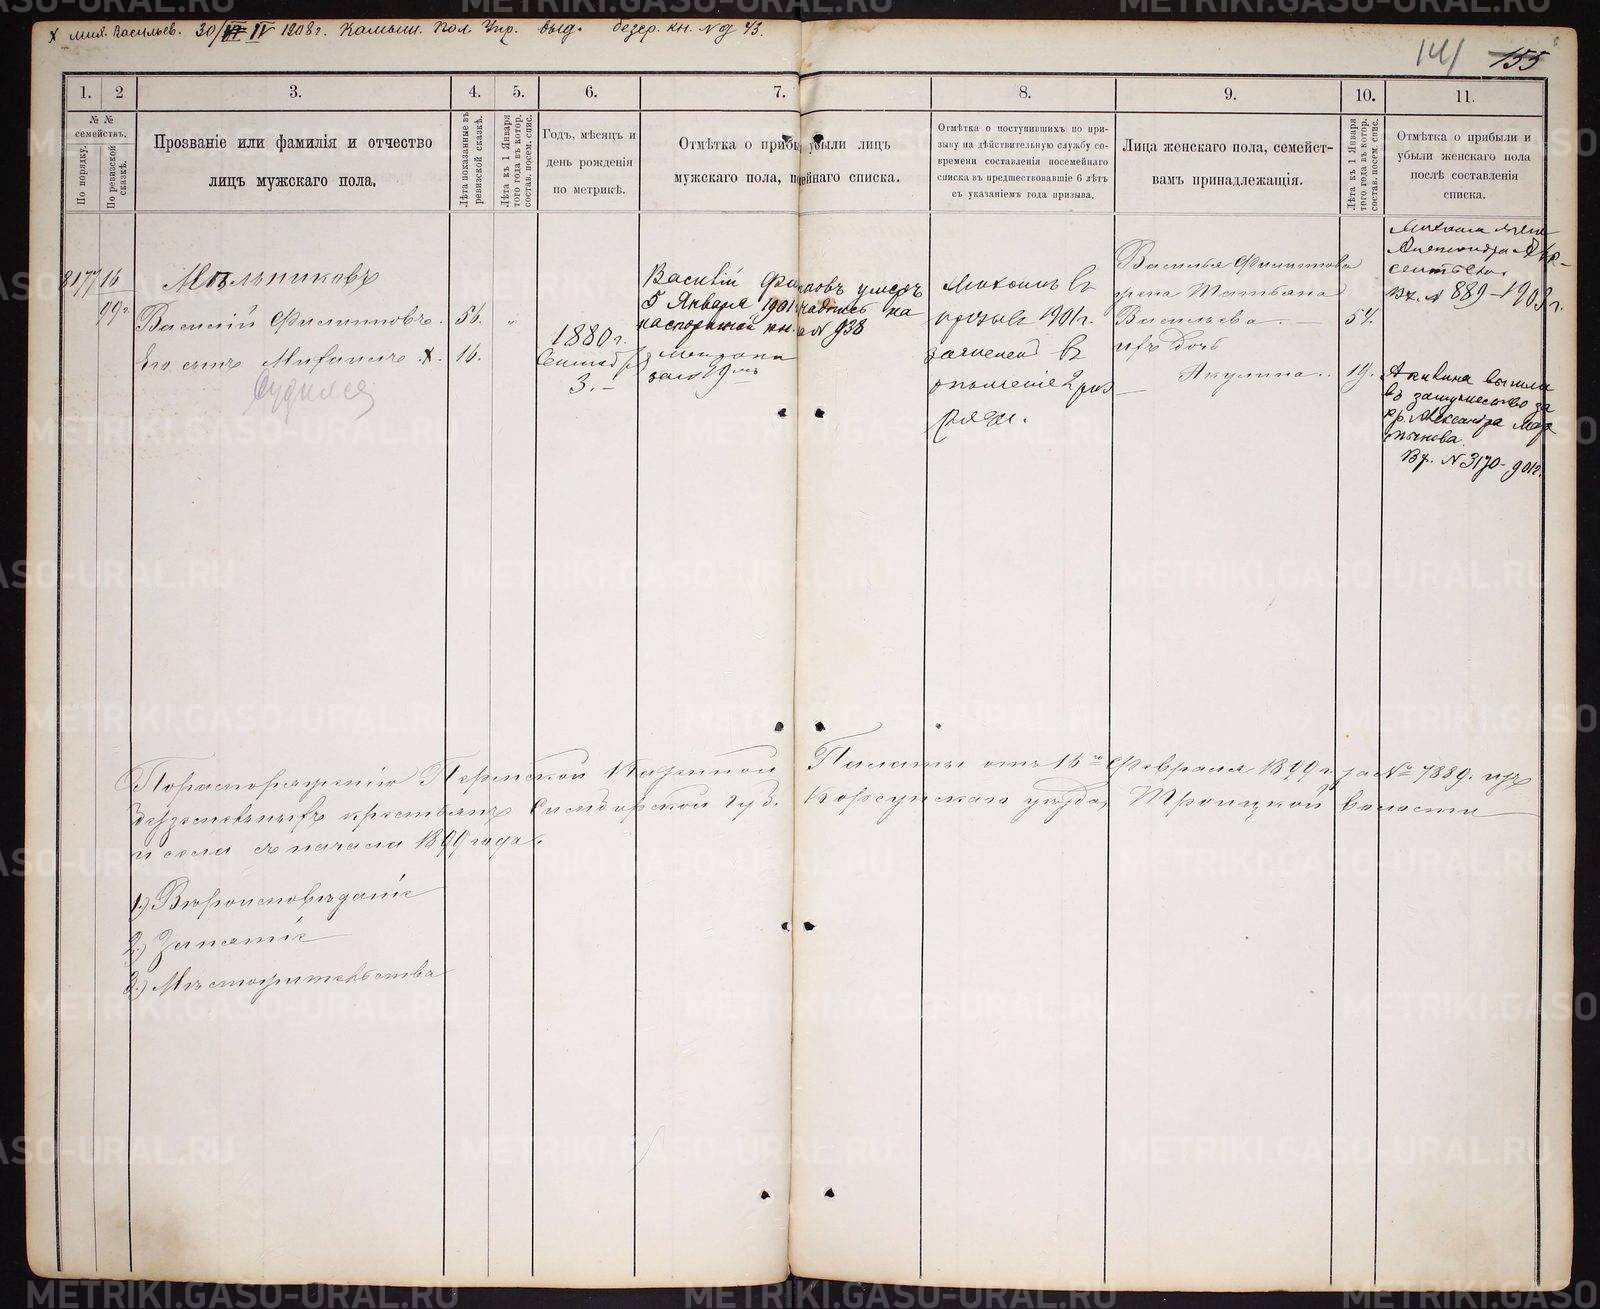 х Мих. Васильев. 30/VI IV 1908 г. Камышл. Пол. Упр. выд. безср. кн. № 43.
141 155
1. 2 3. 4. 5. 6. 7. 8. 9. 10. 11.
№ №
семействъ.
По порядку.
По ревизской
сказкѣ.
Прозваніе или фамилія и отчество
лицъ мужскаго пола.
Лѣта показанные въ
ревизской сказкѣ.
Лѣта къ 1 Января
того года въ котор.
состав. посем. спис.
Годъ, мѣсяцъ и
день рожденія
по метрикѣ.
Отмѣтка о прибы убыли лицъ
мужскаго пола, п ейнаго списка.
Отмѣтка о поступившихъ по при-
зыву на дѣйствительную службу со-
времени составленія посемейнаго
списка въ предшествовавшіе 6 лѣтъ
съ указаніемъ года призыва.
Лица женскаго пола, семейст-
вамъ принадлежащія.
Лѣта къ 1 Января
того года въ котор.
состав. посем. спис.
Отмѣтка о прибыли и
убыли женскаго пола
послѣ составленія
списка.
8177 16
99 г.
Мѣльниковъ
Василій Филипповъ. 56. "
Его сынъ Михаилъ х. 16.
Судился
1880 г.
Сентяб
3.
Василій умеръ
5 Января 1901 г. на
паспортной кн. № 938
Михаилъ въ
призывъ 1901 г.
зачисленъ въ
ополченіе 2 раз
ряда.
Василья Филиппова
жена Татьяна
Васильева 54.
ихъ дочь
Акулина 19.
Михаила жена
Александра
Вх. № 889-1903 г.
Акилина вышла
въ замужество за
кр. Александра Мар
тынова.
Вх. № 3170-901 г.
По распоряженію Пермской Казенной Палаты отъ 16 го Февраля 1899 г. за № 7889. изъ
безземельныхъ крестьянъ Симбирской губ. Корсунскаго уѣзда, Троицкой волости
и села съ начала 1899 года.
1.) Вѣроисповѣданіе
2.) Занятіе
3.) Мѣстожительства
METRIKI.GASO-URAL.RU